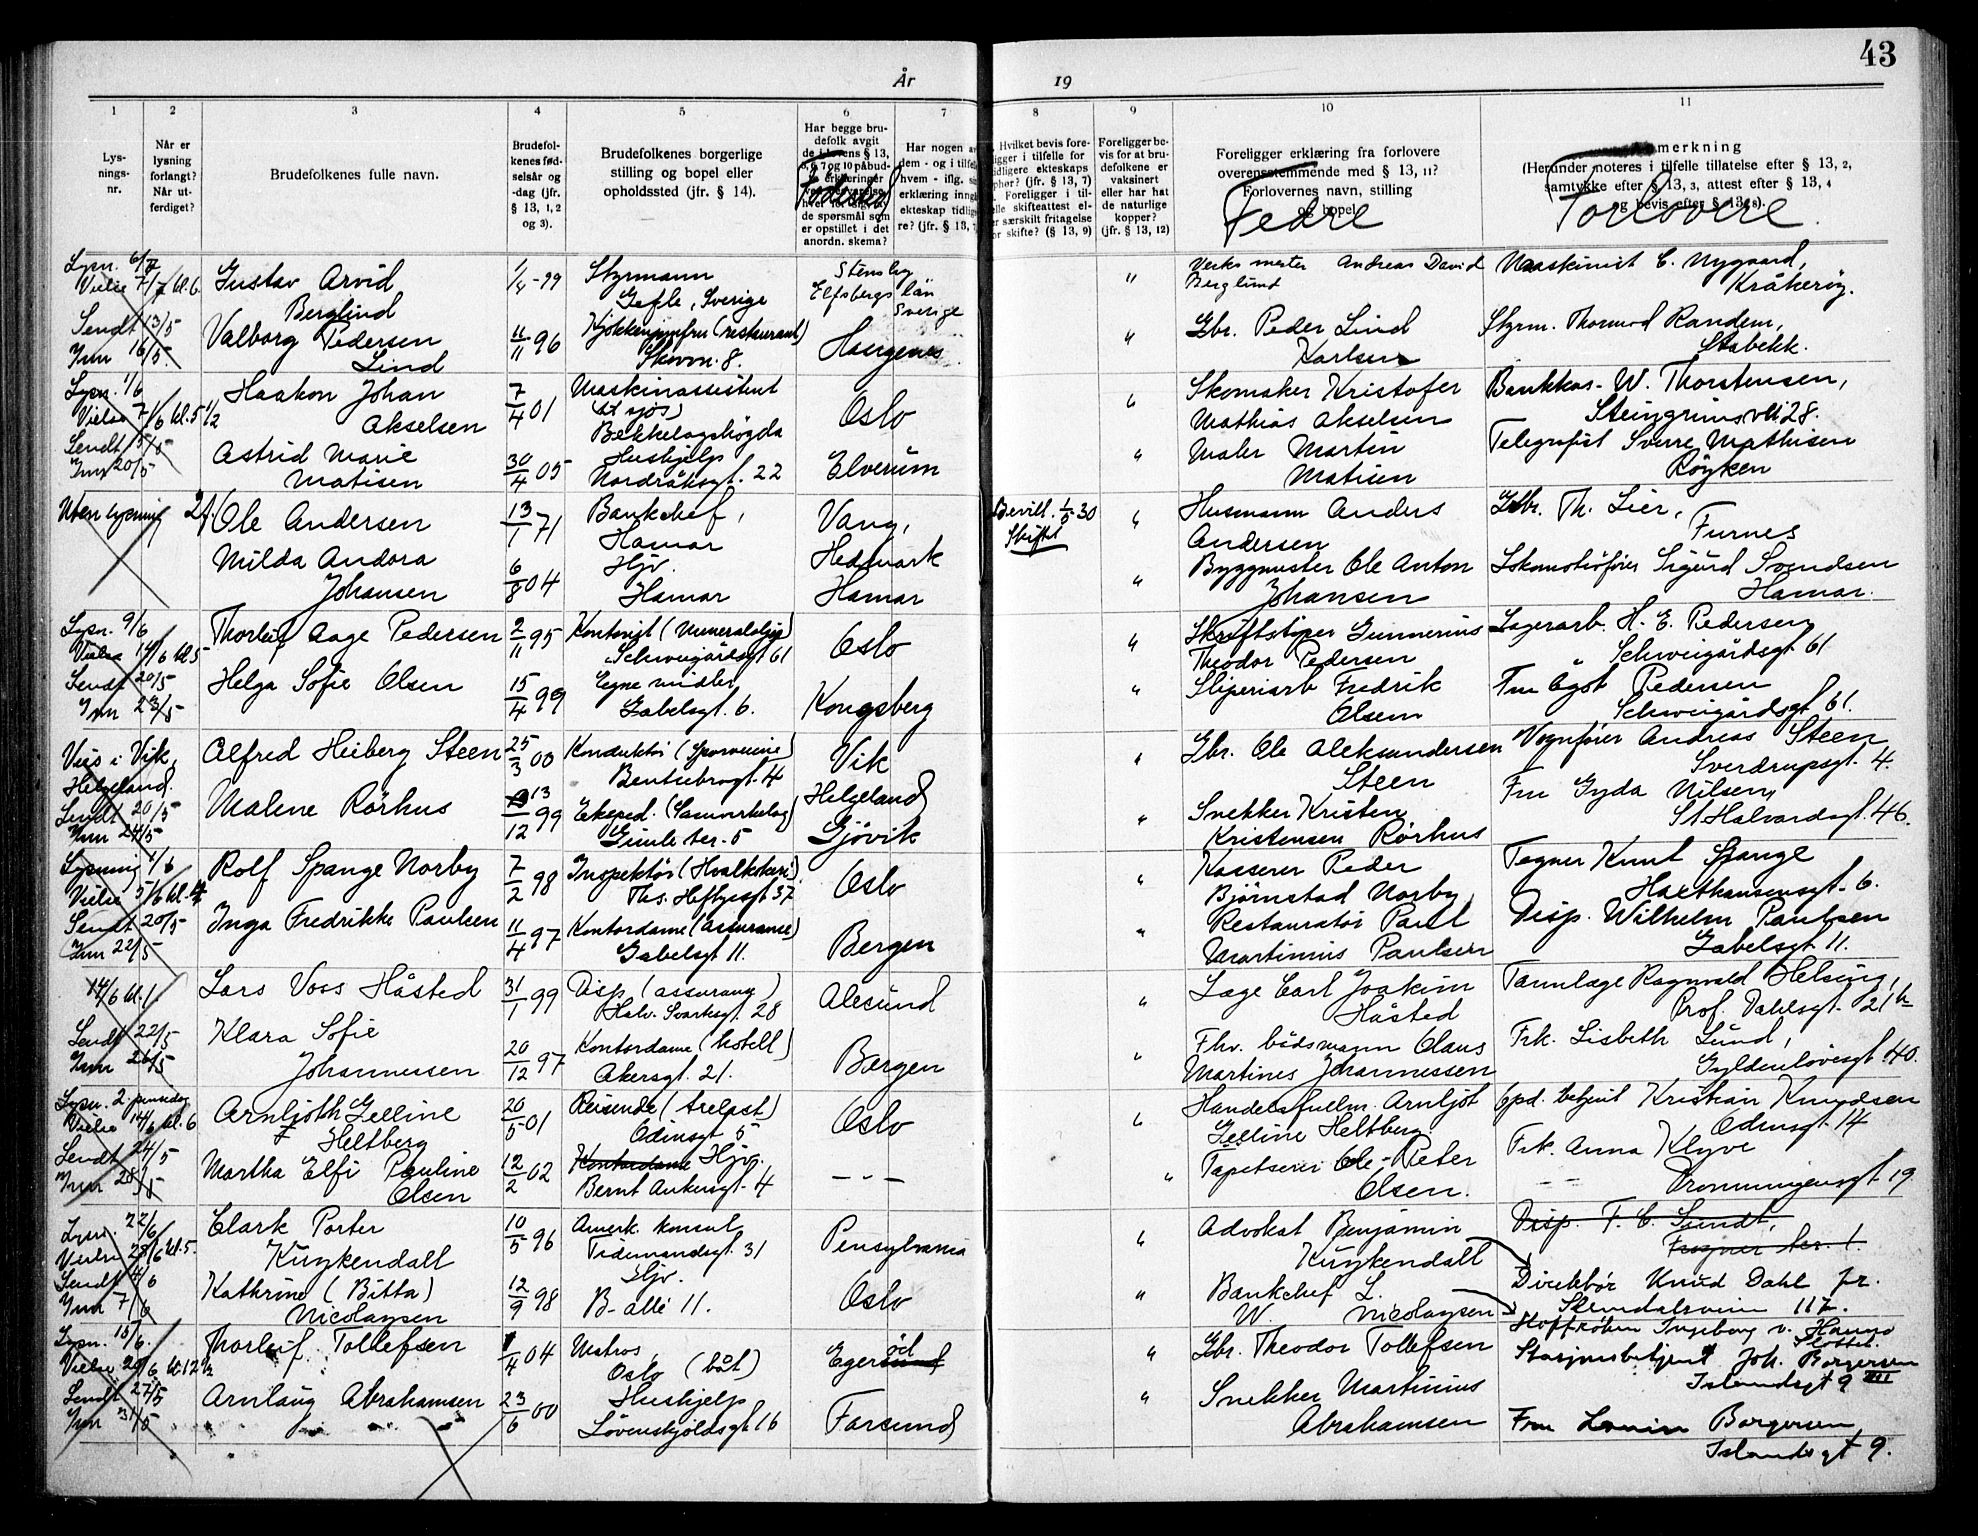 43
År
19
1
2
3
4
5
6
7
8
9
10
11
Lys-
nings-
nr.
Når er
lysning
forlangt?
Når ut-
ferdiget?
Brudefolkenes fulle navn.
Brudefol-
kenes fød-
selsår og
-dag (jfr.
§ 13, 1, 2
og 3).
Brudefolkenes borgerlige
stilling og bopel eller
opholdssted (jfr. § 14).
Har begge bru-
defolk avgit
de i lovens § 13,
5, 6, 7 og 10 påbud-
Fødested
de spørsmål som
er opstillet i det
anordn. skema?
Har nogen av
dem - og i tilfelle
hvem - iflg. sin
erklæring inngått
ekteskap tidlige-
re? (jfr. § 13, 7
Hvilket bevis fore-
ligger i tilfelle for
tidligere ekteskaps
ophør? (jfr. § 13, 7)
Foreligger i til-
felle skifteattest el-
ler særskilt fritagelse
for skifte? (§ 13, 9)
Foreligger be-
vis for at bru-
defolkene er
vaksinert
eller har hat
de naturlige
kopper?
(jfr. § 13, 12)
Foreligger erklæring fra forlovere
overensstemmende med § 13, 11?
Forlovernes navn, stilling
og bopel.
Fedre
merkning
(Herunder noteres i tilfelle tillatelse efter § 13, 2,
samtykke efter § 13, 3, attest efter § 13, 4
og bevis efter § 13, 8).
Forlovere.
Lysn. 6/7
Vielse 7/7 kl. 6.
Sendt 13/5
Inn 16/5.
Gustav Arvid
Berglind
1/4 - 99
Styrmann
Gefle, Sverige
Stensby
Elfsbergs län
Sverige
"
Verksmester Andreas David
Berglund
Maskinist C. Nygaard,
Kråkerøy.
Valborg Pedersen
Lind
11/11 96
Kjøkkenjomfru (restaurant)
8.
Haugenes
"
Gbr. Peder Lind
Karlsen
Styrm. Thormod Randem,
Stabekk.
Lysn. 1/6
Vielse 7/6 kl. 5 1/2
Sendt /5
Inn 20/5
Haakon Johan
Akselsen
7/4 01
Maskinassistent
(til sjøs)
Bekkelagshøgda
Oslo
"
Skomaker Kristofer
Mathias Akselsen
Bankkas. W. Thorstensen,
Steingrims vei 28.
Astrid Marie
Matisen
30/4 05
Hushjelp
Nordråksgt. 22
Elverum
"
Maler Martin
Matisen
Telegrafist Sverre Mathisen
Røyken
Uten lysning
Ole Andersen
13/1 71
Bankchef,
Hamar
Vang,
Hedmark
Bevill. 1/5 30
Skiftet
"
Husmann Anders
Andersen
Gbr. Th. Lier,
Furnes
Milda Andora
Johansen
6/8 04
Hjv.
Hamar
Hamar
"
Byggmester Ole Anton
Johansen
Lokomotivfører Sigurd Svendsen
Hamar.
Lysn. 9/6
Vielse 14/6 kl. 5
Sendt 20/5
Inn 23/5
Thorleif Aage Pedersen
2/11 95
Kontorist (Mineraloljer)
Schweigårdsgt 61
Oslo
"
Skriftstøper Gunnerius
Theodor Pedersen
Lagerarb. H. E. Pedersen,
Schweigårdsgt 61
Helga Sofie Olsen
15/4 99
Egne midler
Gabelsgt. 6.
Kongsberg
"
Sliperiarb Fredrik
Olsen
Fru Ågot Pedersen
Schweigårdsgt 61.
Vies i Vik,
Helgeland.
Sendt 20/5
Inn 24/5
Alfred Heiberg Steen
25/3 00
Konduktør (Sporveiene)
Bentsebrogt. 4
Vik
Helgeland
"
Gbr. Ole Aleksandersen
Steen
Vognfører Andreas Steen
Sverdrupsgt. 4.
Malene Rørhus
13/12 99
Eksped. (Samvirkelag)
Gimle ter. 5
Gjøvik
"
Snekker Kristen
Kristensen Rørhus
Fru Gyda Nilsen,
St Halvardsgt. 46.
Lysning 1/6
Vielse 5/6 kl. 4
Sendt 20/5
Inn 22/5
Rolf Spange Norby
7/2 98
Inspektør (Hvalkokeri)
Ths. Heftyesgt 37
Oslo
"
Kasserer Peder
Bjørnstad Norby
Tegner Knut Spange
Holthausensgt. 6.
Inga Fredrikke Paulsen
11/4 97
Kontordame (assuranse)
Gabelsgt 11.
Bergen
"
Restauratør Paul
Martinius Paulsen
Disp. Wilhelm Paulsen
Gabelsgt 11.
14/6 kl. 1.
Sendt 22/5
Inn 26/5
Lars Voss Håsted
31/1 99
Disp. (assurang)
Halv. Svartesgt. 28
Alesund
"
Læge Carl Joakim
Håsted
Tannlæge Ragnvald Helsing,
Prof. Dahlsgt. 21 b
Klara Sofie
Johannessen
20/12 97
Kontordame (hotell)
Akersgt. 21.
Bergen
"
Fhv. bådsmann Claus
Martines Johannessen
Frk. Lisbeth Lund,
Gyldenløvesgt 40.
Lysn. 2. pinsedag
Vielse 14/6 kl. 6
Sendt 24/5
Inn 28/5
Arnljoth Gelline
Heltberg
20/5 01
Reisende
Odinsgt 5
Oslo
"
Handelsfullm. Arnljot
Gelline Heltberg
Opd. betjent Kristian Knudsen
Odinsgt. 14
Martha Elfi Pauline
Olsen
12/2 02
Kontordame Hjv.
Bernt Ankersgt. 4
— " —
"
Tapetserer Ole - Peter
Olsen.
Frk. Anna Klyve
Dronningensgt 19
Lysn. 22/6
Vielse 28/6 kl. 5.
Sendt 4/6
Inn 7/6
Clark Porter
Kuykendall
10/5 96
Amerk. konsul
Tidemandsgt. 31
Pensylvania
"
Advokat Benjamin
Kuykendall
Disp. F. C. Sundt,
Frogner ter. 1.
Kathrine (Bitta)
Nicolaysen
12/9 98
Hjv.
B- alle 11.
Oslo
"
Bankchef L.
W. Nicolaysen
Direktør Knud Dahl jr.
Slemdalsveien 117.
Hoffrøken Ingeborg v. Hanno
Slottet.
Lysn. 15/6.
Vielse 20/6 kl. 12 1/2
Sendt 27/5
Inn 31/5
Thorleif Tollefsen
/4 04
Matros,
Oslo (båt)
Egersund
"
Gbr. Theodor Tollefsen
Stasjonsbetjent Joh. Borgersen
Islandsgt 9 III
Arnlaug Abrahamsen
23/6 00
Hushjelp
Løvenskjoldsgt 16
Farsund
"
Snekker Martinius
Abrahamsen
Fru Borgersen
Islandsgt 9.